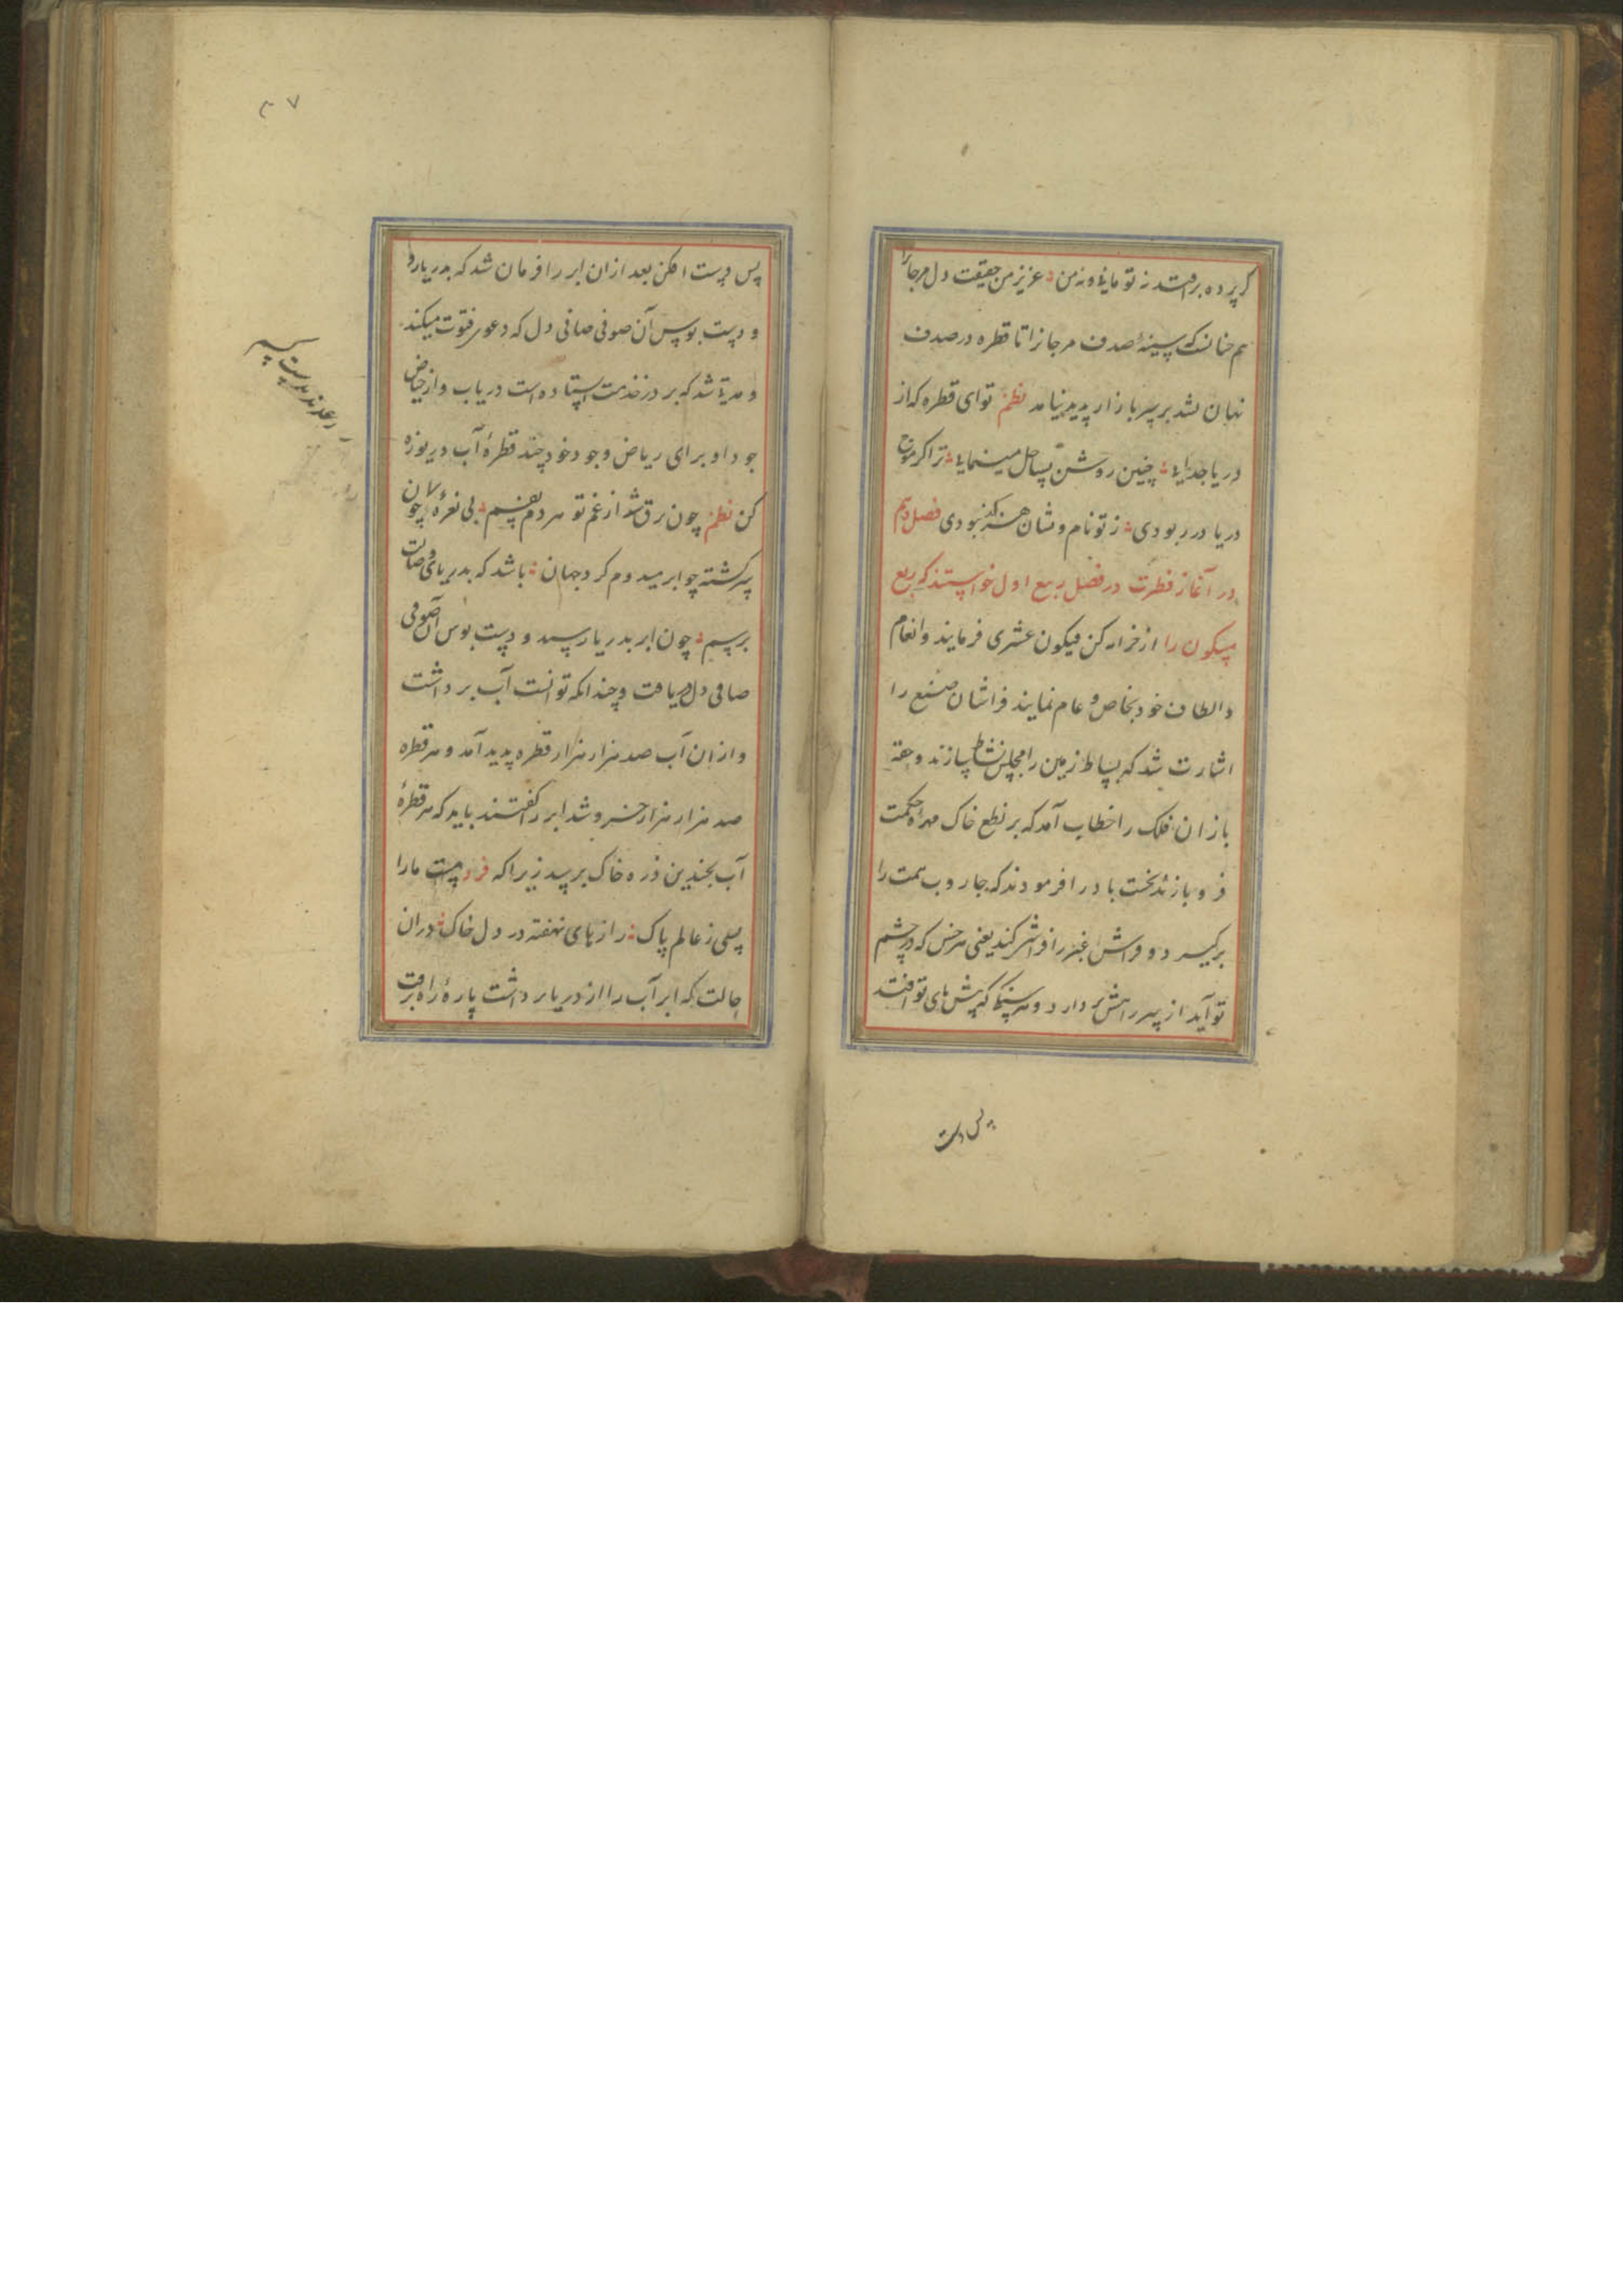 کر پرده برافتد نه تو مانی و نه من عزیز من حقیقت دل مرجانرا
هم چنانست که سینهٔ صدف مرجانرا تا قطره در صدف
نهان نشد بر سر بازار پدید نیامد نظم تو ای قطره که از
دریا جدایی چنین روشن بساحل مینمایی ترا کر موج
دریا در ربودی ز تو نام و نشان هرکز نبودی فصل دهم
در آغاز فطرت در فصل ربیع اول خواستند که ربع
مسکون را از خزانه کن فیکون عشری فرمایند و انعام
و الطاف خود بخاص و عام نمایند فراشان صنع را
اشارت شد که بساط زمین را مجلس نشاط سازند و حقه
بازان فلک را خطاب آمد که بر نطع خاک مهرهٔ حکمت
فرو بازند نخست باد را فرمودند که جاروب همت را
برکیرد و فراش غبر را فراشی کند یعنی هر خس که در چشم
تو آید از سر راهش بردار و هر سنک که پیش پای تو افتد
پس دست
۳۷
پس دست افکن بعد ازان ابر را فرمان شد که بدریا رو
و دست بوس آن صوفی صافی دل که دعوی فتوت میکند
و مدتی شد که بر در خدمت استاده است دریاب و از حیاض
جود او برای ریاض وجود خود چند قطرهٔ آب دریوزه
کن نظم چون برق شد از غم تو هر دم نفسم بی نعره چون
سرکشته چو ابر میدوم کرد جهان باشد که بدریای وصالت
برسم چون ابر بدریا رسید و دست بوس آن صوفی
صافی دل دریافت و چندانکه توانست آب برداشت
و ازان آب صد هزار هزار قطره پدید آمد و هر قطره
صد هزار هزار جزو شد ابر را کفتند باید که هر قطرهٔ
آب بچندین ذره خاک برسد زیرا که فرد هست ما را
بسی ز عالم پاک رازهای نهفته در دل خاک دران
حالت که ابر آب را از دریا برداشت پارهٔ راه برفت